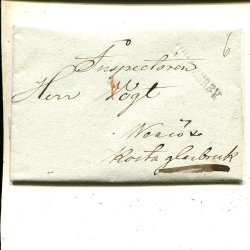 6
Inspectoren
Herr Vogt
Wexiö &
Kosta glasbruk